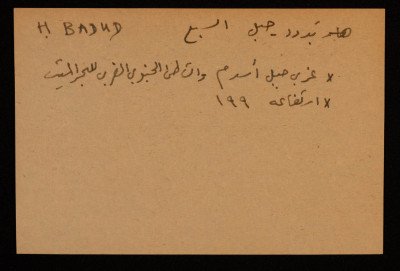 H BADUD هابدود - جبل السبع
x غربي جبل أسدم والشاطئ الجنوبي الغربي للبحر الميت
x ارتفاعه ١٩٩